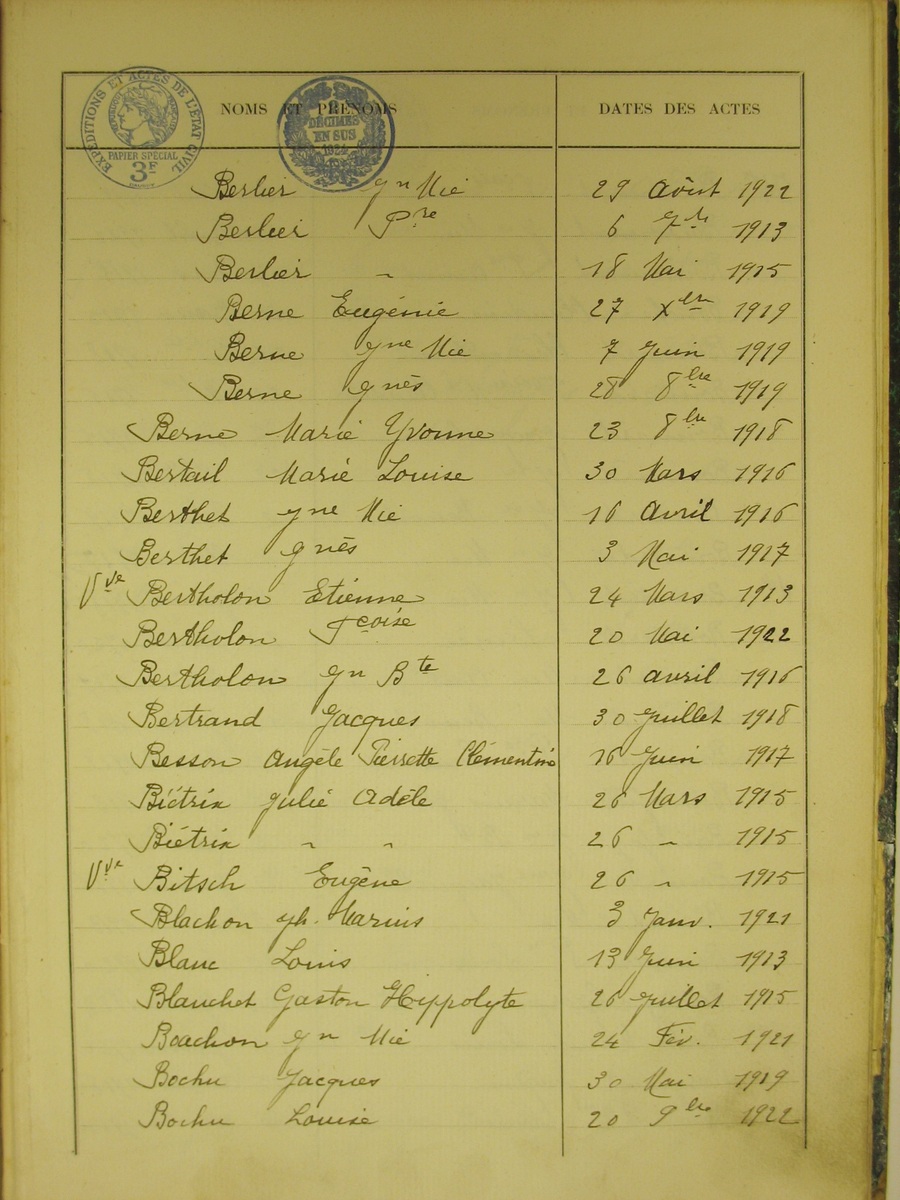 EXPÉDITIONS ET ACTES DE L'ÉTAT CIVIL
PAPIER SPÉCIAL
3F
DÉCIMES
EN SUS
1924
NOMS ET PRÉNOMS DATES DES ACTES
Berlier Jn Mie 29 Août 1922
Berlier Pre 6 7bre 1913
Berlier " 18 Mai 1915
Berne Eugénie 27 Xbre 1919
Berne Jne Mie 7 Juin 1919
Berne Jnès 28 8bre 1919
Berne Marie Yvonne 23 8bre 1918
Bertail Marie Louise 30 Mars 1916
Berthet Jne Mie 16 Avril 1916
Berthet Jnès 3 Mai 1917
Vve Bertholon Etienne 24 Mars 1913
Bertholon Fçoise 20 Mai 1922
Bertholon Jn Bte 26 avril 1916
Bertrand Jacques 30 Juillet 1918
Besson Angèle Pierrette Clémentine 16 Juin 1917
Biétrix Julie Adèle 26 Mars 1915
Biétrix " " 26 " 1915
Vve Bitsch Eugène 26 " 1915
Blachon Jh. Marius 3 Janv. 1921
Blanc Louis 13 Juin 1913
Blanchet Gaston Hippolyte 26 Juillet 1915
Boachon Jn Mie 24 Fév. 1921
Bochu Jacques 30 Mai 1919
Bochu Louise 20 9bre 1922